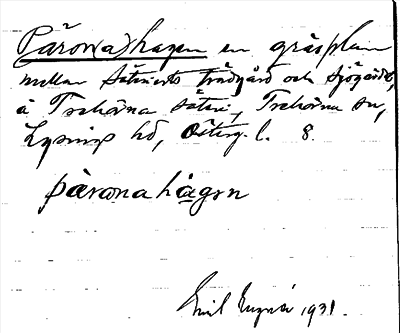 Päron(a)hagen en gräsplan
mellan säteriets trädgård och sjögärdet,
å Trehörna säteri, Trehörna sn,
Lysings hd, Östergl. l. 8.
pärona hagen
Emil 1931.